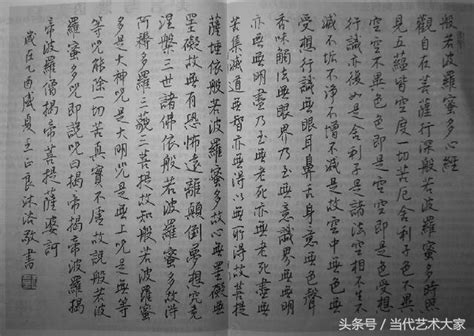 般若波羅蜜多心經
觀自在菩薩行深般若波羅蜜多時照
見五蘊皆空度一切苦厄舍利子色不異
空空不異色色即是空空即是色受想行
識亦復如是舍利子是諸法空相不生不
滅不垢不淨不增不減是故空中無色無
受想行識無眼耳鼻舌身意無色聲
香味觸法無眼界乃至無意識界無無明
亦無無明盡乃至無老死亦無老死盡無
苦集滅道無智亦無得以無所得故菩提
薩埵依般若波羅蜜多故心無罣礙無
罣礙故無有恐怖遠離顛倒夢想究竟
涅槃三世諸佛依般若波羅蜜多故得
阿耨多羅三藐三菩提故知般若波羅蜜
多是大神咒是大明咒是無上咒是無等
等咒能除一切苦真實不虛故說般若波
羅蜜多咒即說咒曰揭帝揭帝波羅揭
帝波羅僧揭帝菩提薩婆訶
乙酉盛夏王正良沐浴敬書
头条号 / 当代艺术大家